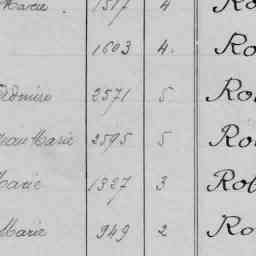 Marie 1517 4 Ro
1603 4. Ro
2571 5 Ro
Marie 2595 5 Ro
Marie 1327 3 Rob
Marie 949 2 Ro